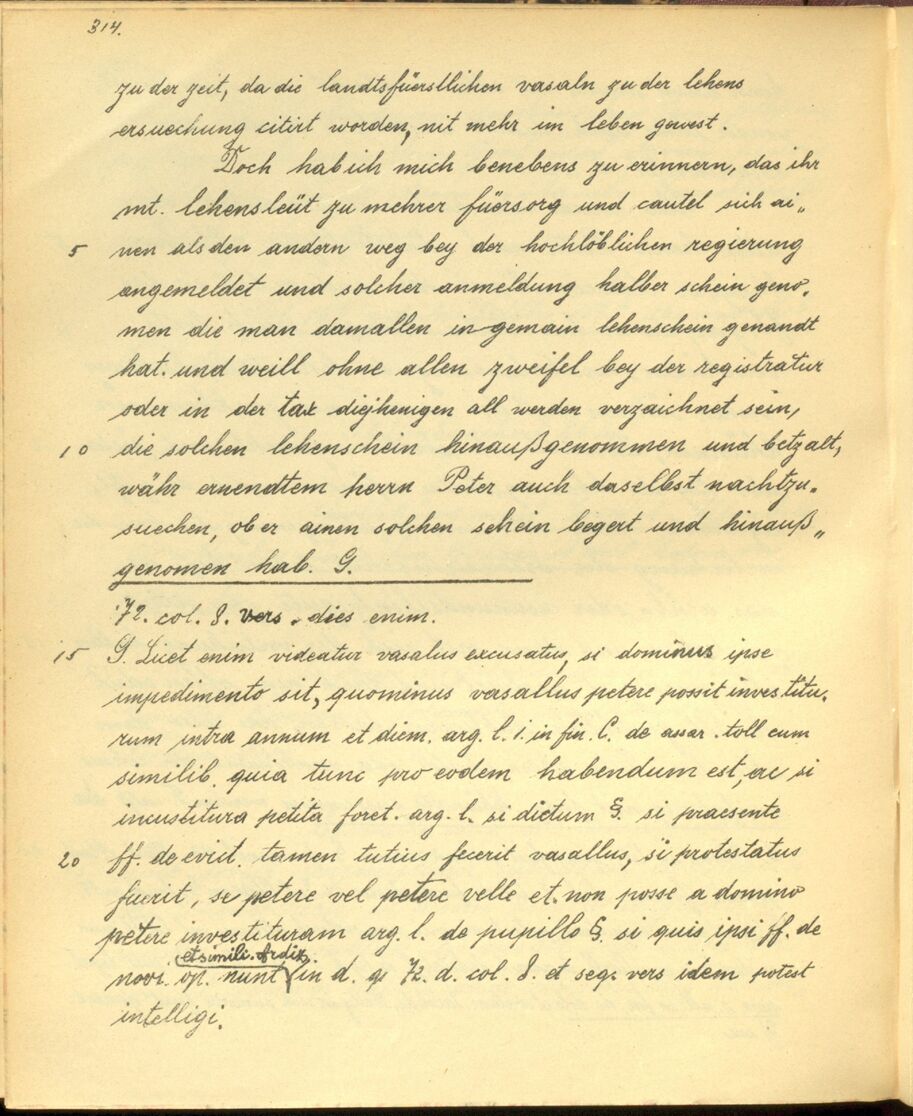 314.
zu der zeit, da die landtsfüerstlichen vasaln zu der lehens
ersuechung citirt worden, nit mehr im leben gewest.
Doch hab ich mich benebens zu erinnern, das ihr
mt. lehensleüt zu mehrer füersorg und cautel sich ai„
5 nen als den andern weg bey der hochlöblichen regierung
angemeldet und solcher anmeldung halber schein geno„
men die man damallen in gemain lehenschein genandt
hat. und weill ohne allen zweifel bey der registratur
oder in der tax diejhenigen all werden verzaichnet sein,
10 die solchen lehenschein hinaußgenommen und betzalt,
währ ernendtem herrn Peter auch daselbst nachtzu„
suechen, ob er ainen solchen schein begert und hinauß„
genomen hab. G.
72. col. 8. vers. dies enim.
15 G. Licet enim videatur vasalus excusatus, si dominus ipse
impedimento sit, quominus vasallus petere possit investitu„
rum intra annum et diem. arg. l. i. in fin. C. de assar. toll cum
similib. quia tunc pro eodem habendum est, ac si
incustitura petita foret. arg. l. si dictum §. si praesente
20 ff. de evict. tamen tutius fecerit vasallus, si protestatus
fuerit, se petere vel petere velle et non posse a domino
petere investituram arg. l. de pupillo §. si quis ipsi ff. de
et simili. et dix.
novi. op. nunt in d. q 72. d. col. 8. et seq. vers idem potest
intelligi.